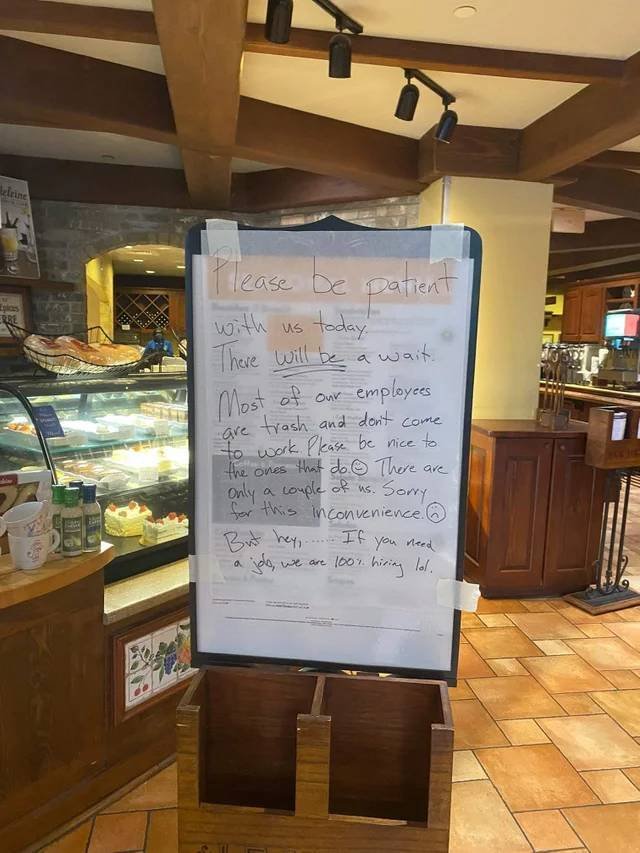 Please be patient
with us today.
There will be a wait.
Most of our employees
are trash and dont come
to work. Please be nice to
the ones that do ☺ There are
only a couple of us. Sorry
for this inconvenience. ☹
But hey, ..... If you need
a job, we are 100% hiring lol.